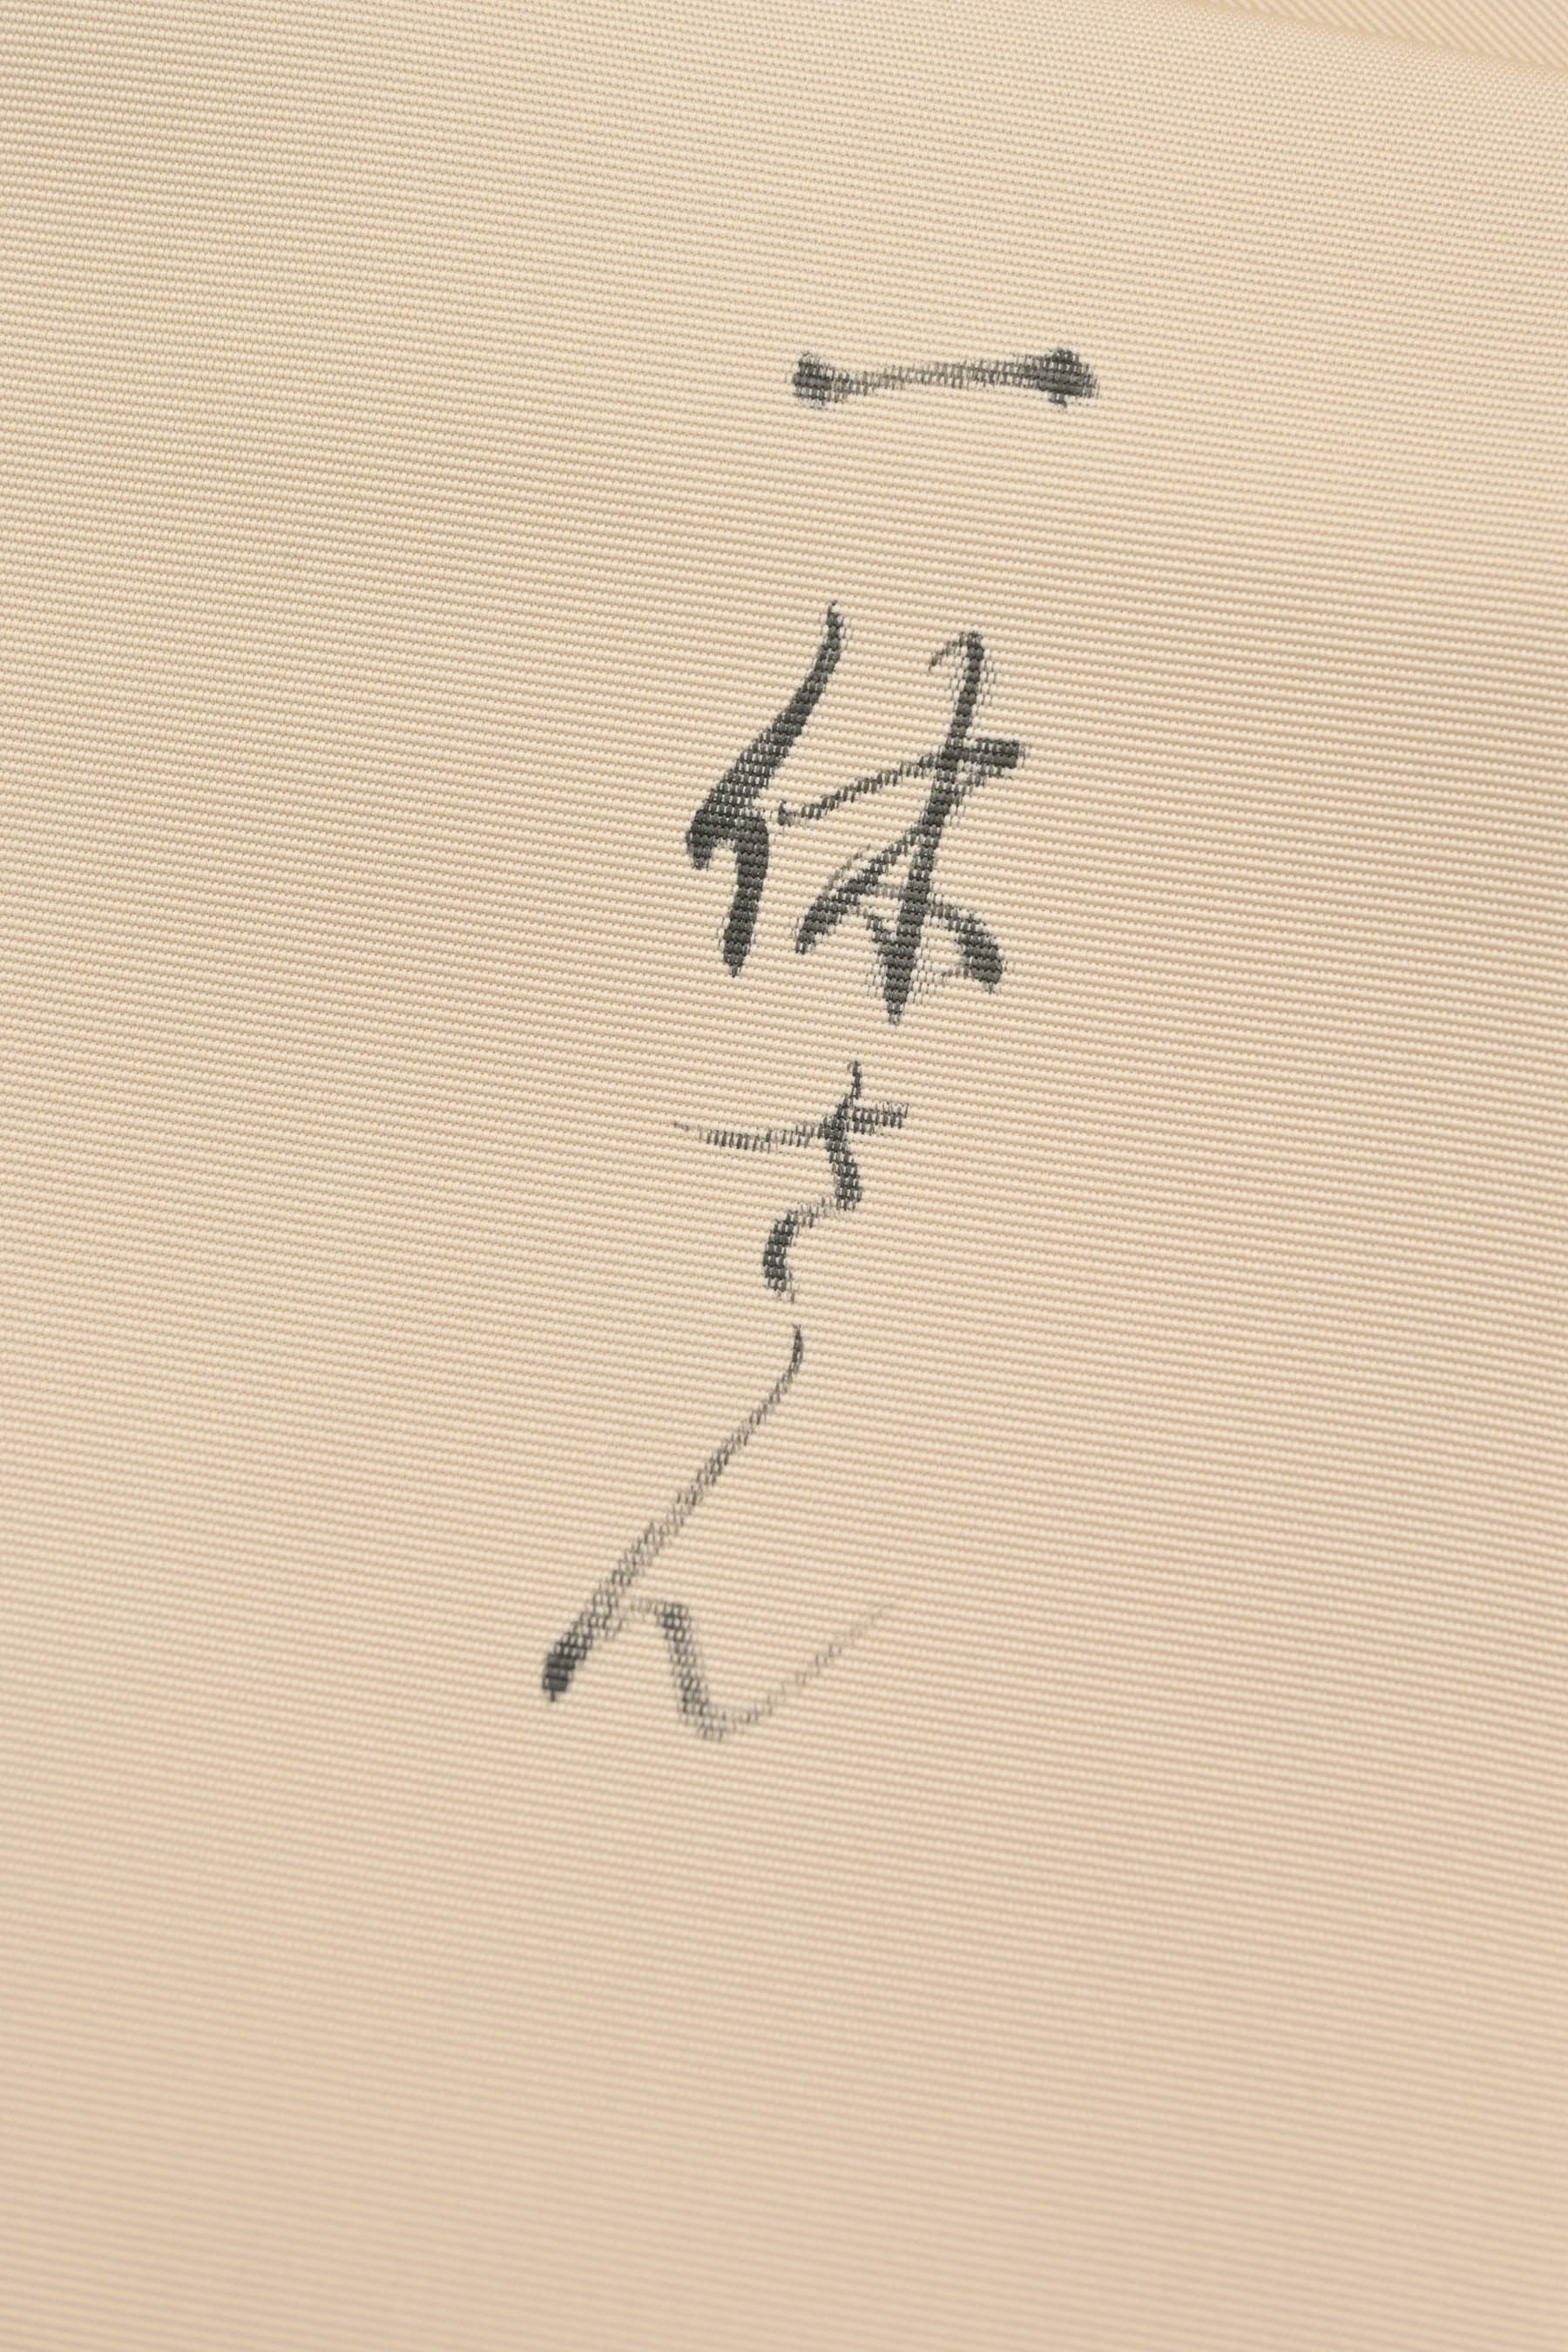 一休さん